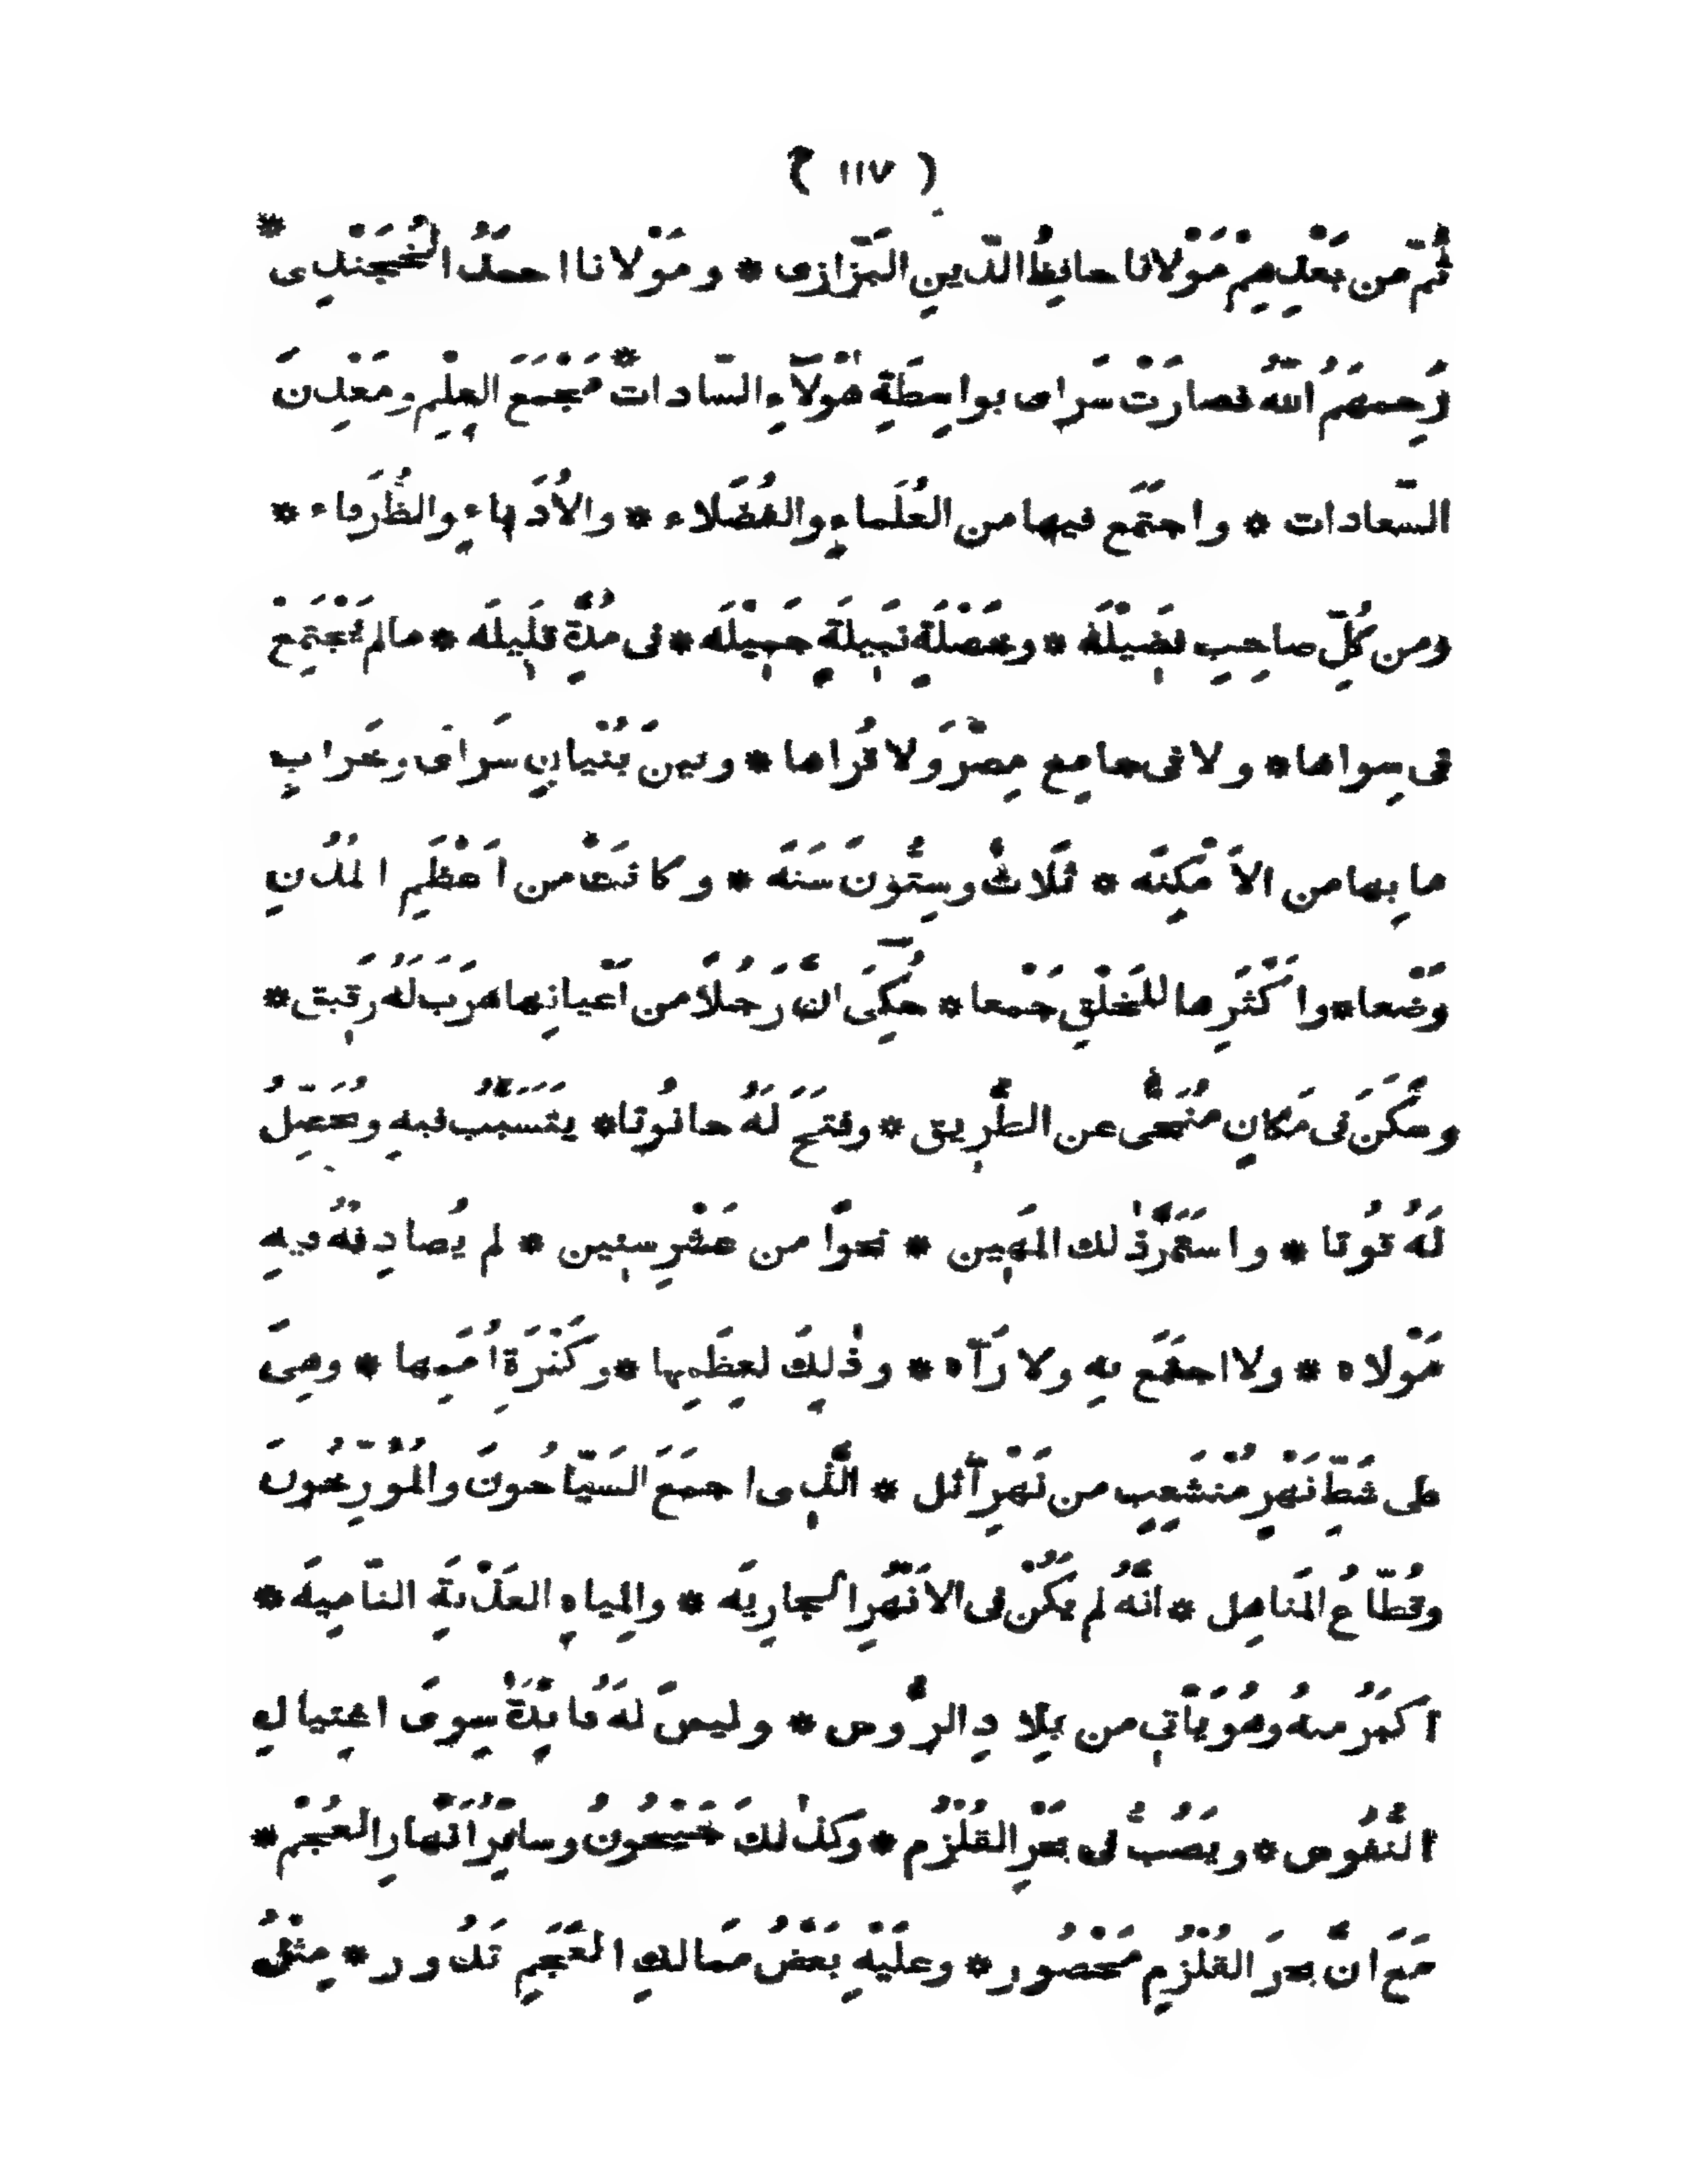 ( ١١٧ )
ثُمّ من بَعْدِهِمْ مَوْلانا حافِظُ الدّينِ البَزّازى * ومَوْلانا احمَدُ الخُجَنْدِى *
رَحِمهَمُ اللّهُ فصارَتْ سَراى بواسِطَةِ هٰؤلآءِ السّادات * مَجْمَعَ العِلْمِ ومَعْدِنَ
السّعادات * واجتَمَع فيها من العُلَماءِ والفُضَلاء * والأُدَباءِ والظُرَفاء *
ومن كُلِّ صاحِبِ فَضِيْلَة * وخَصْلَةٍ نَبِيلَةٍ جَمِيْلَه * فى مُدّةٍ قَلِيلَه * مالم تَجْتَمِعْ
فى سِواها * ولا فى جامِع مِصْرَ ولا قُراها * وبينَ بُنْيانِ سَراى وخَرابِ
ما بِها من الأَمْكِنَه * ثَلاثٌ وسِتُّونَ سَنَه * وكانَتْ من اَعْظَمِ المُدُنِ
وَضْعا * واكْثَرِها للخَلْقِ جَمْعا * حُكِىَ انَّ رَجُلاً من اَعْيانِها هَرَبَ لَهُ رَقِيق *
وسَكَنَ فى مَكانٍ مُنَحًّى عن الطَّرِيق * وفتَحَ لَهُ حانُوتا * يتَسَبَّبُ فيهِ ويُحَصِّلُ
لَهُ قُوتا * واستَمَرَّ ذٰلك المَهِين * نحوًا من عَشْرِ سنِين * لم يُصادِفْهُ فيهِ
مَوْلاه * ولا اجتَمَع بهِ ولا رَآه * وذٰلِكَ لعِظَمِها * وكَثْرَةِ اُمَمِها * وهِىَ
على شَطِّ نَهْرٍ مُنْشَعِبٍ من نَهْرِ آثل * الَّذِى اجمَعَ السَيّاحُونَ والمُؤرِّخُونَ
وقُطّاعُ المَناهِل * انَّهُ لم يَكُنْ فى الاَنْهُرِ الجارِيَه * والمِياهِ العَذْبَةِ النّامِيَه *
اكبَرُ منهُ وهُوَ يَأتِى من بِلادِ الرُّوس * وليسَ لَهُ فائِدَةٌ سِوىَ اغتِيالِ
النُّفُوس * ويَصُبُّ فى بَحْرِ القُلْزُم * وكذٰلكَ جَيْحُونُ وسائِرُ اَنْهارِ العُجْم *
مَعَ انَّ بحرَ القُلْزُمِ مَحْصُور * وعلَيْهِ بَعْضُ مَمالِكِ العَجَمِ تَدُور * مِثْلُ